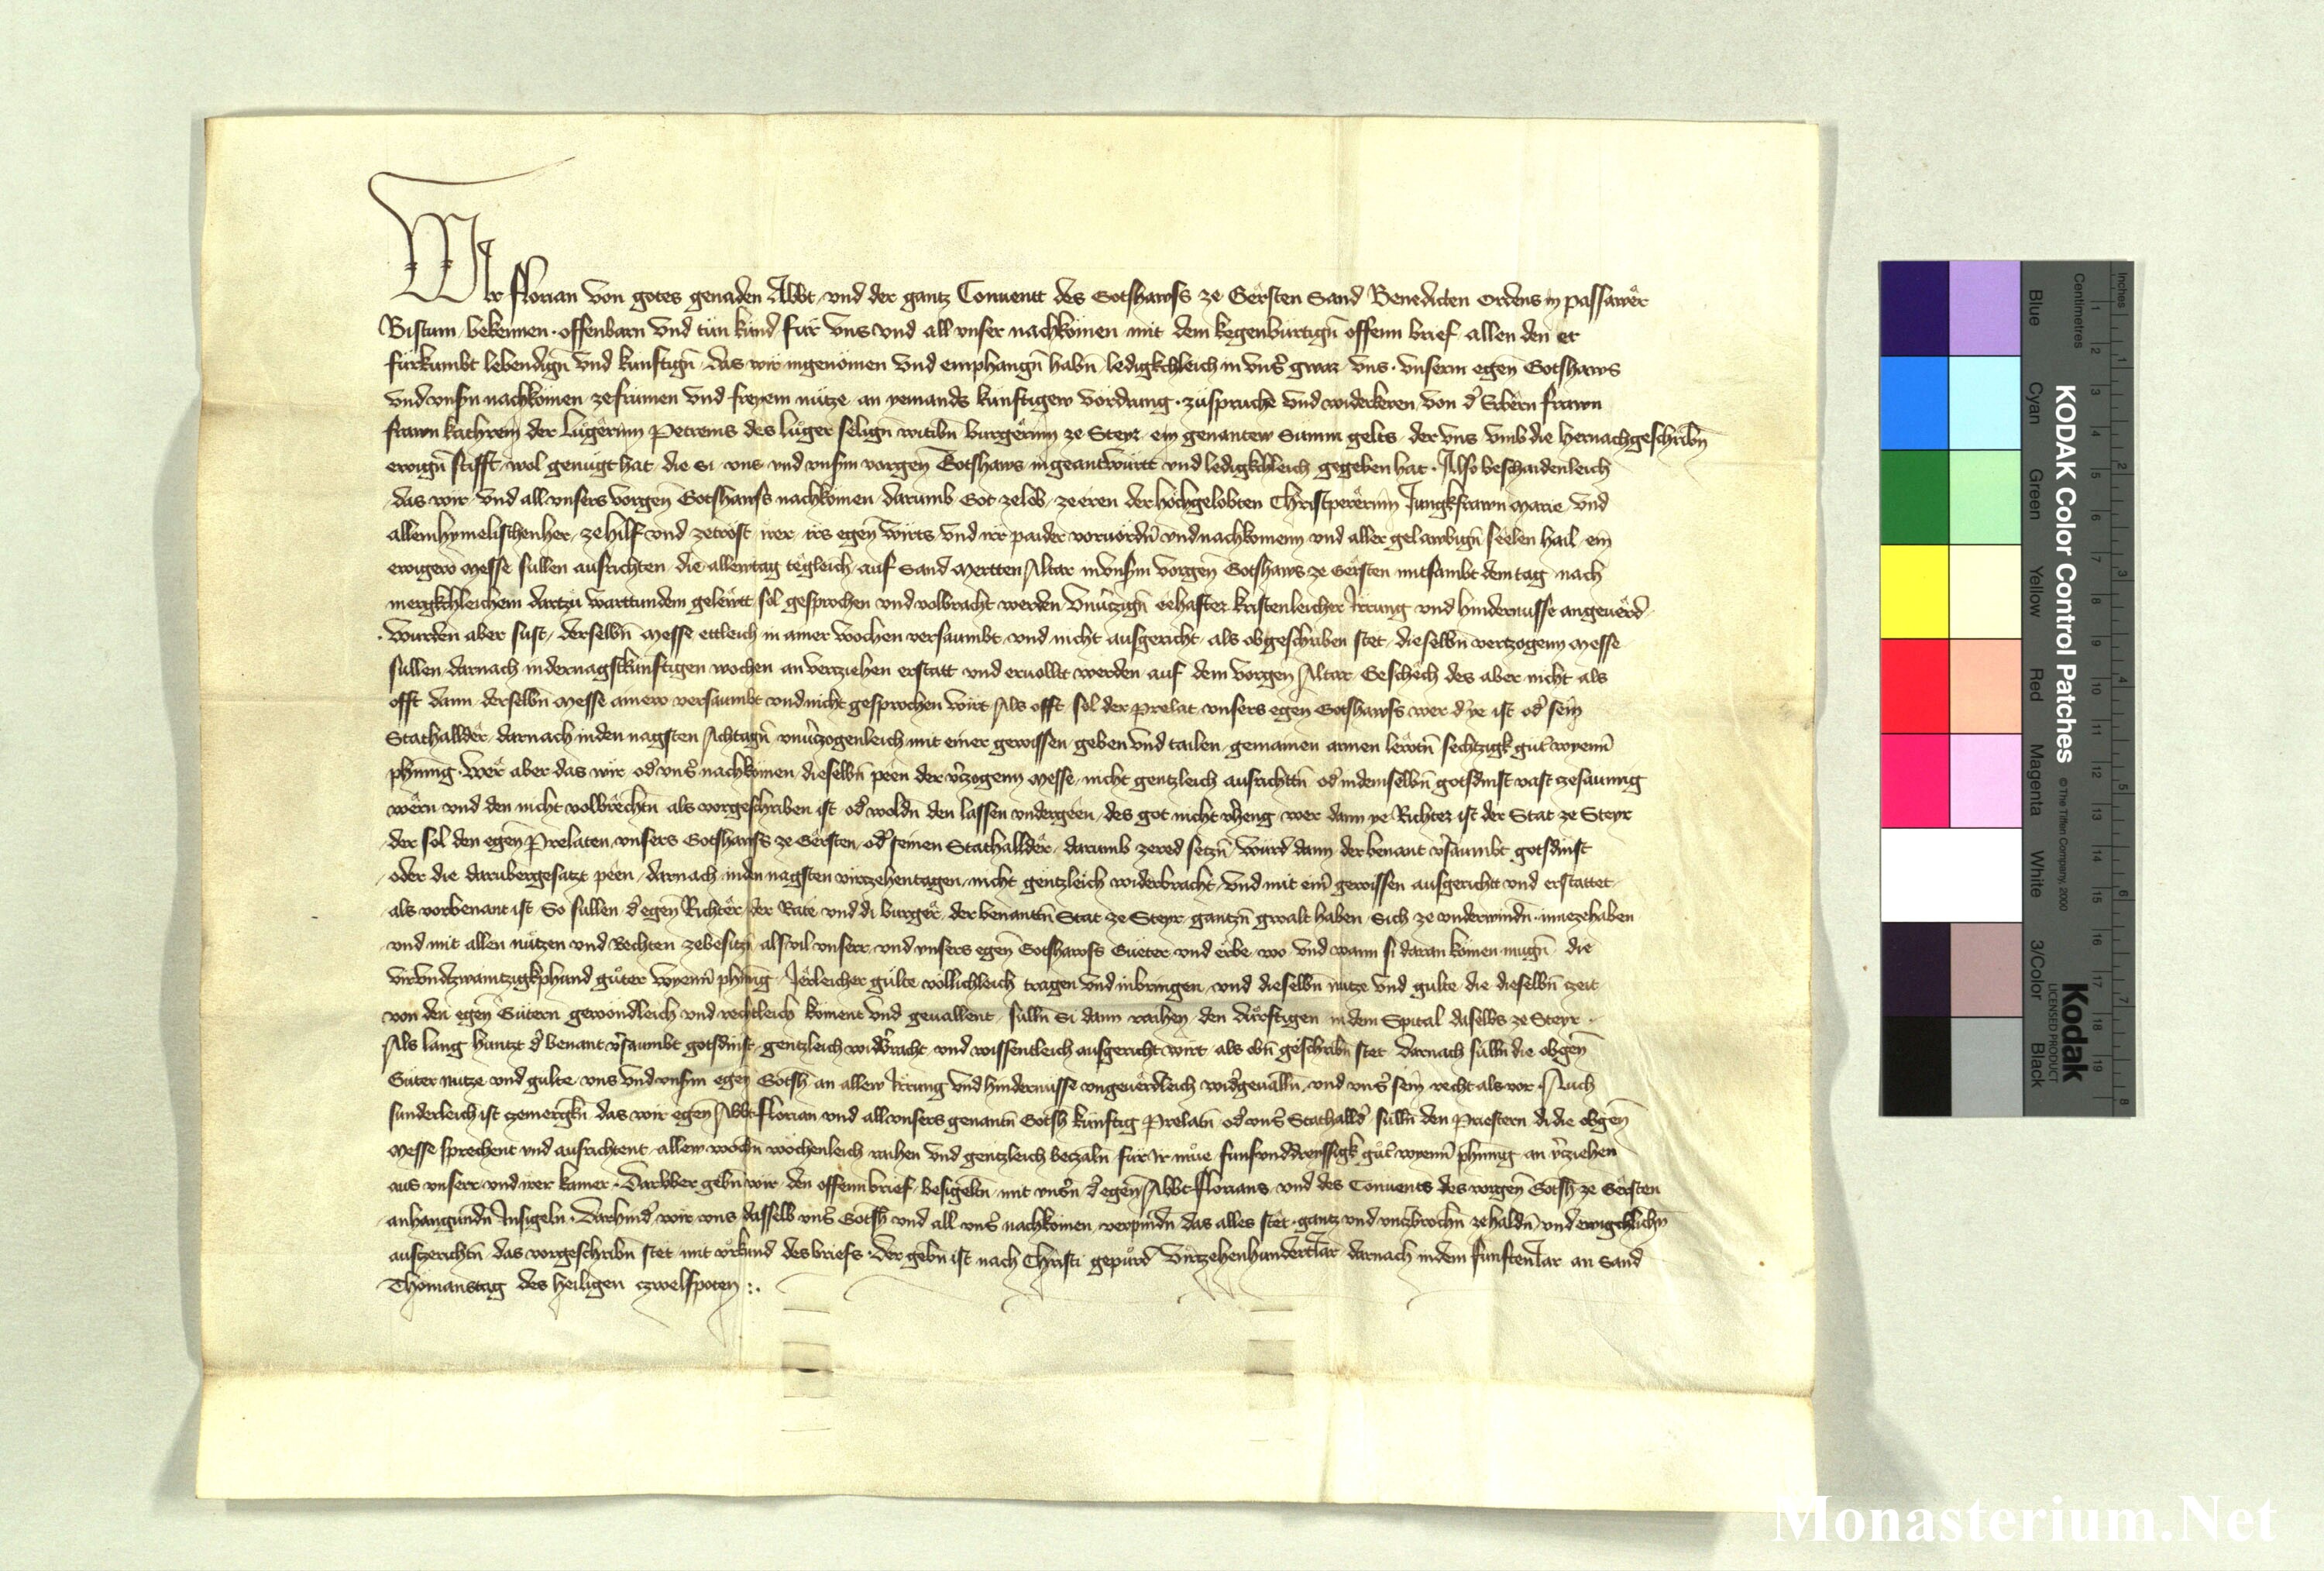 Wir Florian von gotes genaden Abbt und der gantz Conuentt des Gotshawss ze Gërsten Sand Benedicten Ordens in Passawër
Bistum bekennen offenbarn und tůn kůnd für uns und all unser nachkömen mit dem kegenbürtigñ offenn brief allen den er
fürkumbt lebendigñ und kunftigñ das wir ingenömen und emphangñ habñ ledigkchleich in unsˀ gwar uns unserm egeñ Gotshaws
und unsˀm nachkömen zefrümen und freyem nütze an yemands künftigew vördrung züspruche und widerkeren von dˀ Erbërn frawn
frawn kathrein der Lügërinn Petreins des lüger seligñ witibñ burgërinn ze Steyr ein genantew Summ gelts der uns umb die hernachgeschribñ
ewigñ stifft wol genügt hat die si uns und unsˀm vorgeñ Gotshaws ingeantwürtt und ledigkchleich gegeben hat Also beschaidenleich
das wir und all unsers vorgeñ Gotshawss nachkömen darumb Got zelob zeeren der höchgelobten Christpererinn Jungkfrawn Marie und
allem hymelischenher ze hilf und zetröst irer irs egeñ wirts und irr paider voruördñ und nachkomenn und aller gelawbigñ seelen hail ein
ewigew messe süllen aufrichten die allentag tëgleich auf Sand Mertten Altar in unsˀm vorgeñ Gotshaws ze Gërsten mitsambt dem tag nach
mergkchleichem dartzü warttundem gelewtt sol gesprochen und volbracht werden unüˀzigñ eehafter kristenleicher Irrung und hindernüsse angeuërd
Würden aber sust derselbñ messe ettleich in ainer wochen versaumbt und nicht ausgericht als obgeschriben stet dieselbñ vertzogenn messe
süllen darnach in der nagstkünftigen wochen an verziehen erstatt und eruollet werden auf dem vorgeñ Altar Geschëch des aber nicht als
offt dann derselbñ messe ainew versaumbt und nicht gesprochen wirt Als offt sol der prelat unsers egeñ Gotshawss wer dˀ ye ist odˀ sein
Stathalldër darnach in den nagsten Achtagñ unuˀzogenleich mit einer gewissen geben und tailen gemainen armen lewtñ sechtzigk gütˀ wyennˀ
phñnig Wër aber das wir odˀ unsˀ nachkömen dieselbñ peen der vˀzogenn messe nicht gentzleich ausrichttñ odˀ in demselbñ gotsdinst vast czesaumig
wërn und den nicht volbrëchtñ als vorgeschriben ist odˀ woldñ den lassen undergeen des got nicht vˀheng wer dann ye Richter ist der Stat ze Steyr
der sol den egeñ Prelaten unsers Gotshawss ze Gërsten odˀ seinen Stathalldër darumb zered setzñ würd dann der benant vˀsaumbt gotsdinst
oder die darubergesatzt peen darnach in den nagsten virczehentagen nicht gentzleich widerbracht und mit einˀ gewissen ausgericht und erstattet
als vorbenant ist So süllen dˀ egeñ Richtër der Rate und di burgër der benanttñ Stat ze Steyr gantzñ gwalt haben sich ze underwindñ innezehaben
und mit allen nützen und Rechten zebesitzñ als vil unserr und unsers egeñ Gotshawss Güeter und erbe wo und wann si daran kömen mügñ die
virundzwaintzigkphund güter wyennˀ phñnig Jerleicher gülte völlichleich tragen und inbringen und dieselbñ nütze und gülte die dieselbñ czeit
von den egeñ Gütern gewöndleich und rechtleich koment und geuallent sülln Si dann raihen den dürftigen in dem Spital daselbs ze Steyr
Als lang huntzt dˀ benant vˀsaumbt gotsdinst gentzleich widˀbracht und wissentleich ausgericht wirt als obñ geschribñ stet Darnach sülln die obgeñ
Güter nutze und gulte uns und unsˀm egeñ Gotsh an allew Irrung und hindernüsse ungeuërdleich widˀgeuallñ und unsˀ sein recht als vor Auch
sunderleich ist czemergkñ das wir egeñ Abbt Florian und all unsers genantñ Gotsh künftig Prelatñ odˀ unsˀ Stathalldˀ sülln den Priestern di die obgeñ
Messe sprechent und ausrichtent allew wochñ wochenleich raihen und gentzleich beczaln für ir müe fünfunddreyssigk gütˀ wyennˀ phñnig an vˀziehen
aus unserr und irer kamer Darüber gebñ wir den offenn brief besigeltñ mit unsˀn dˀ egeñ Abbt Florians und des Conuents des vorgeñ Gotsh ze Gërsten
anhangundñ Insigeln Darhindˀ wir uns dasselb unsˀ Gotsh und all unsˀ nachkömen verpindñ das alles stët gantz und untzebrochñ ze haldñ und ewigchlichñ
auszerichtñ das vorgeschribñ stet mit urkund des briefs Der gebñ ist nach Christi gepürd Virtzehenhundert Jar darnach in dem fünften Jar an Sand
Thomanstag des heiligen czwelfpoten :.
KODAK Color Control Patches
©The Tiffen Company, 2000
Kodak
LICENSED PRODUCT
Inches
Centimetres
Blue
Cyan
Green
Yellow
Red
Magenta
White
3/Color
Black
Monasterium.Net